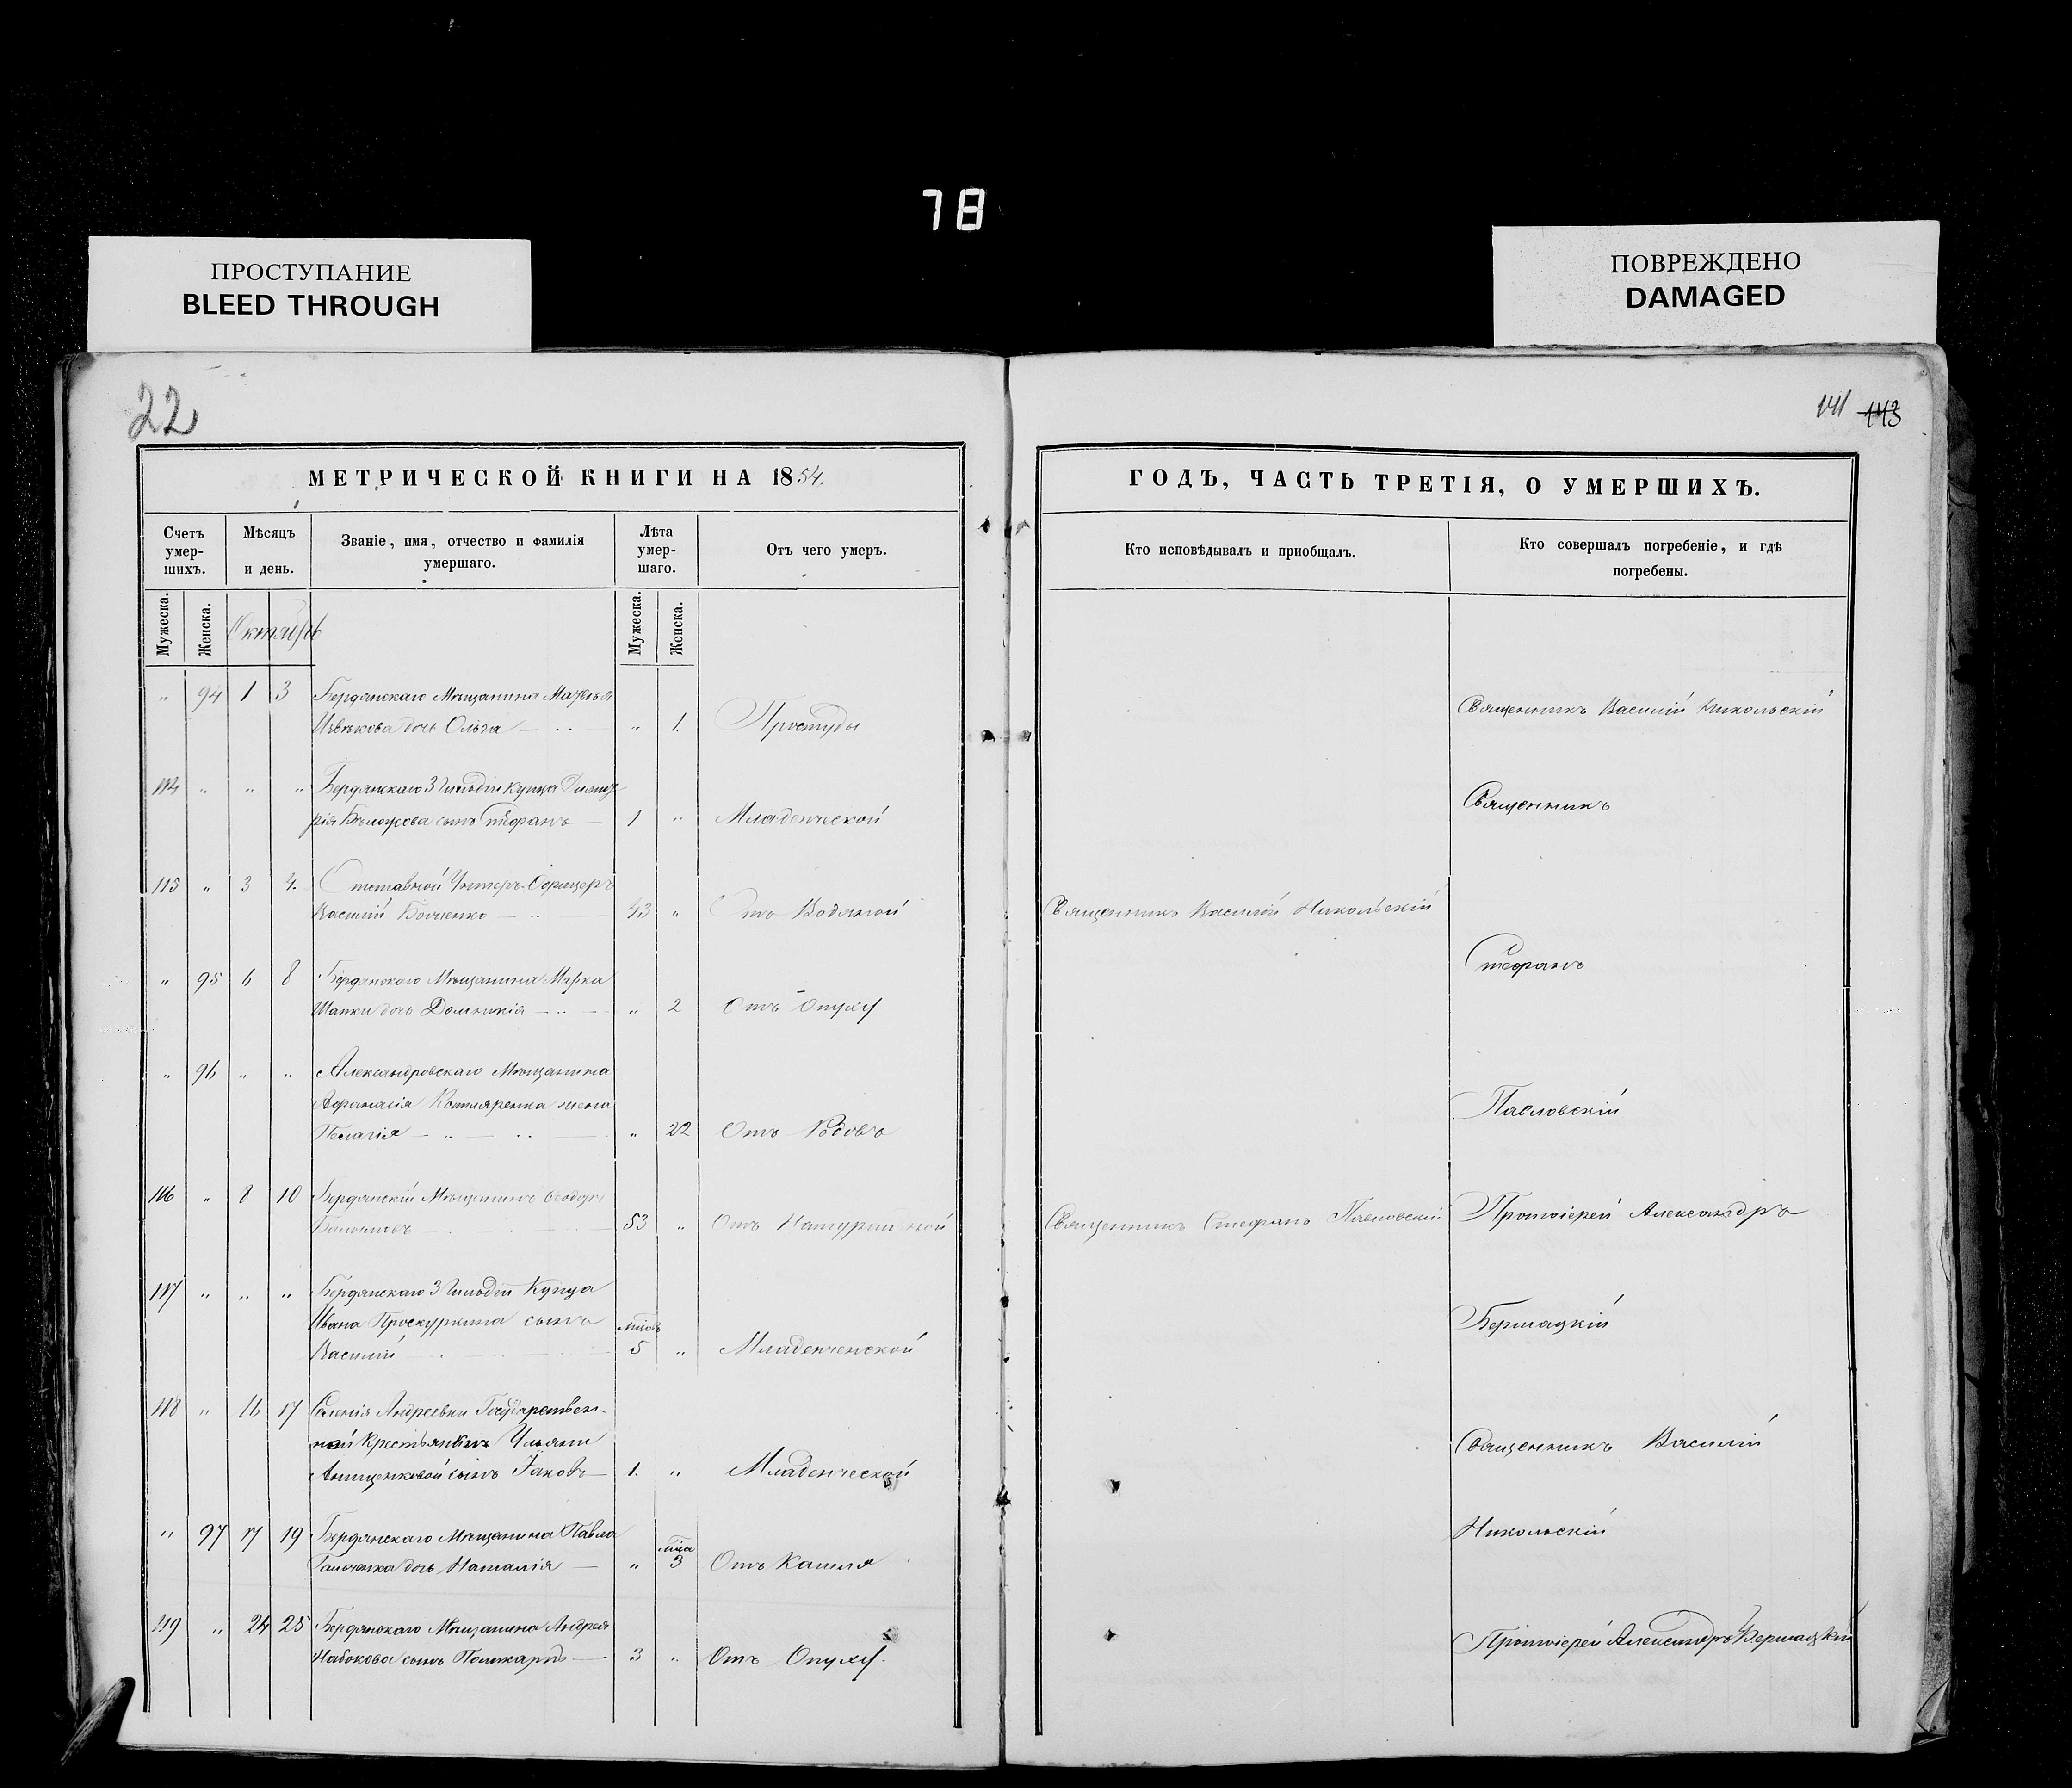 78
ПРОСТУПАНИЕ
BLEED THROUGH
ПОВРЕЖДЕНО
DAMAGED
22
141 143
МЕТРИЧЕСКОЙ КНИГИ НА 1854.
Счетъ умер-шихъ.
Мѣсяцъ и день.
Званіе, имя, отчество и фамилія умершаго.
Лѣта умер-шаго.
Отъ чего умеръ.
Мужеска.
Женска.
Октябрь
Мужеска.
Женска.
" 94 1 3 Бердянскаго Мѣщанина
дочь Ольга " 1. Простуды
114 " " " Бердянскаго 3 Гильдіи Купца Димит
рія Бѣлоусова сынъ Стефанъ 1 " Младенческой
115 " 3 4. Отставной Унтеръ-Офицеръ
Василій 43 " Отъ Водяной
" 95 6 8 Бердянскаго Мѣщанина Марка
Шапки дочь Домникія " 2 Отъ Опуху
" 96 " " Александровскаго Мѣщанина
Афанасія Котляренка жена
Пелагія " 22 Отъ Родовъ
116 " 8 10 Бердянскій Мѣщанинъ
53 " Отъ Натуральной
117 " " " Бердянскаго 3 Гильдіи Купца
Ивана Проскурнина сынъ
Василій 5 " Младенченской
118 " 16 17 Андреевки Государствен-
ной Крестьянки Ульяни
Анищенковой сынъ Іаковъ 1. " Младенческой
" 97 17 19 Бердянскаго Мѣщанина Павла
дочь Наталія " мѣсца 3 Отъ Кашля
119 " 24 25 Бердянскаго Мѣщанина Андрея
Набокова сынъ Поликарпъ 3 " Отъ Опуху.
ГОДЪ, ЧАСТЬ ТРЕТІЯ, О УМЕРШИХЪ.
Кто исповѣдывалъ и приобщалъ.
Кто совершалъ погребеніе, и гдѣ погребены.
Священникъ Василій Никольскій
Священникъ
Священникъ Василій Никольскій
Стефанъ
Павловскій
Священникъ Стефанъ Павловскій
Протоіерей Александръ
Бершадкій
Священникъ Василій
Никольскій
Протоіерей Александръ Бершадкій